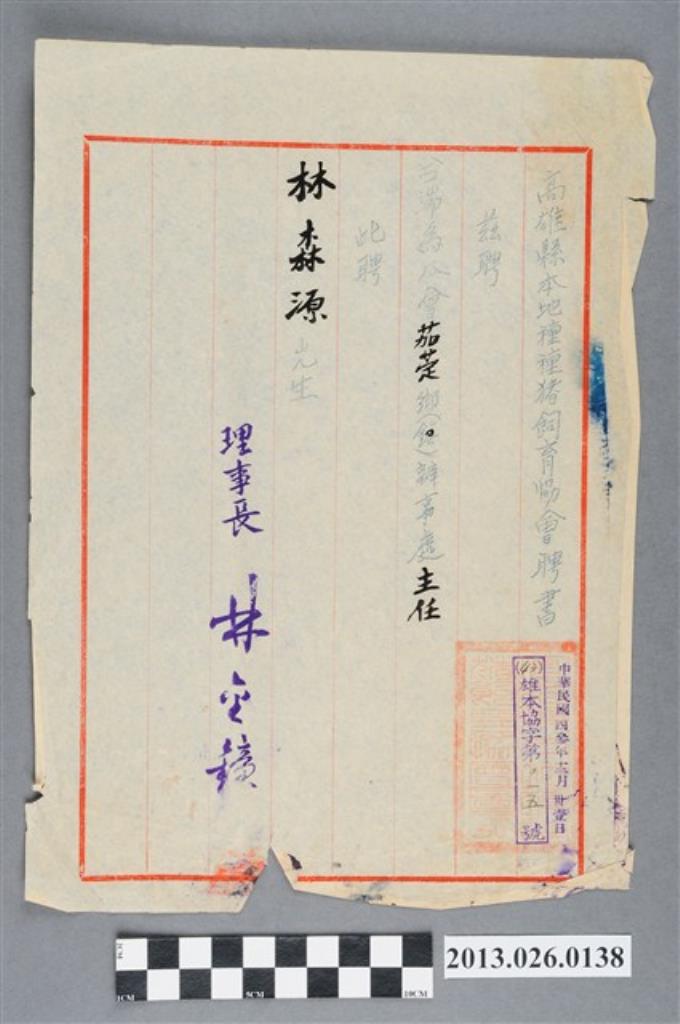 高雄縣本地種種猪飼育協會聘書
茲聘
台端為本會茄萣鄉(鎮)辦事處主任
此聘
林森源先生
理事長 林金鐼
中華民國四叁年十二月卅壹日
(43)雄本協字第 一五 號
2013.026.0138
1CM
5CM
10CM